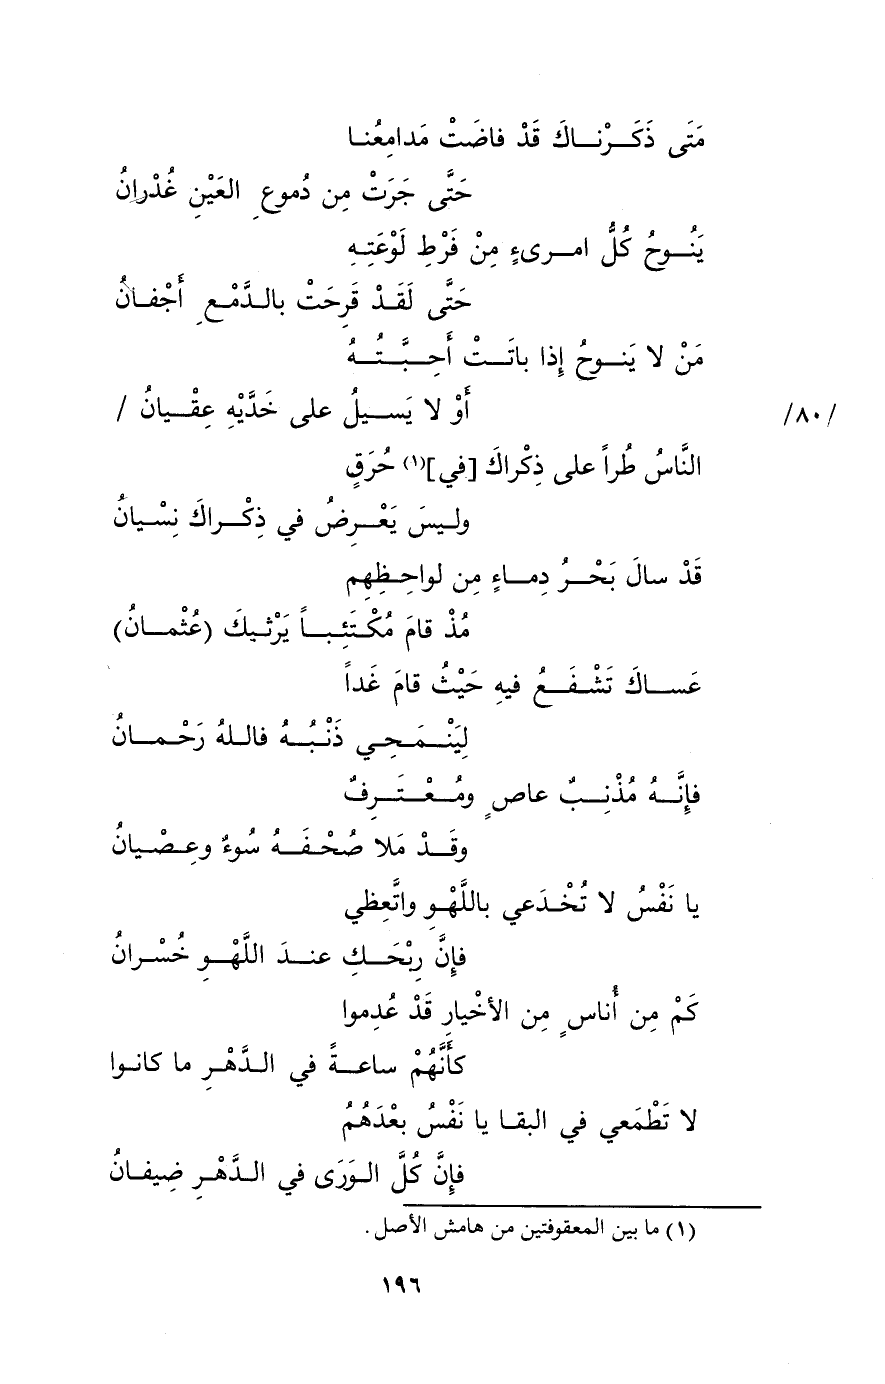 مَتَى ذَكَـرْنـاكَ قَدْ فاضَتْ مَدامِعُنـا
حَتَّى جَرَتْ مِن دُموعِ العَيْنِ غُدْرانُ
يَنُـوحُ كُلُّ امـرىءٍ مِنْ فَرْطِ لَوْعَتِـهِ
حَتَّى لَقَـدْ قَرِحَتْ بالـدَّمْـعِ أَجْفـانُ
مَنْ لا يَنـوحُ إذا باتَـتْ أَحِـبَّـتُـهُ
أَوْ لا يَسـيلُ على خَدَّيْهِ عِقْـيانُ / /٨٠/
النَّاسُ طُراً على ذِكْراكَ [في](١) حُرَقٍ
وليـسَ يَعْـرِضُ في ذِكْـراكَ نِسْيـانُ
قَدْ سالَ بَحْـرُ دِمـاءٍ مِن لواحِـظِهِم
مُذْ قامَ مُكْـتَئِبـاً يَرْثـيكَ (عُثْمـانُ)
عَسـاكَ تَشْـفَـعُ فيهِ حَيْثُ قامَ غَداً
لِيَنْـمَـحِـي ذَنْبُـهُ فاللهُ رَحْـمـانُ
فإنَّـهُ مُذْنِـبٌ عاصٍ ومُـعْـتَـرِفٌ
وقَـدْ مَلا صُحْـفَـهُ سُوءٌ وعِـصْيانُ
يا نَفْسُ لا تُخْـدَعي باللَّهْـوِ واتَّعِظي
فإنَّ رِبْحَـكِ عنـدَ اللَّهْـوِ خُسْـرانُ
كَمْ مِن أُناسٍ مِن الأخْيارِ قَدْ عُدِموا
كَأَنَّهُمْ ساعـةً في الـدَّهْـرِ ما كانـوا
لا تَطْمَعي في البقـا يا نَفْسُ بعْدَهُمُ
فإنَّ كُلَّ الـوَرَى في الـدَّهْـرِ ضِيفـانُ
(١) ما بين المعقوفتين من هامش الأصل.
١٩٦